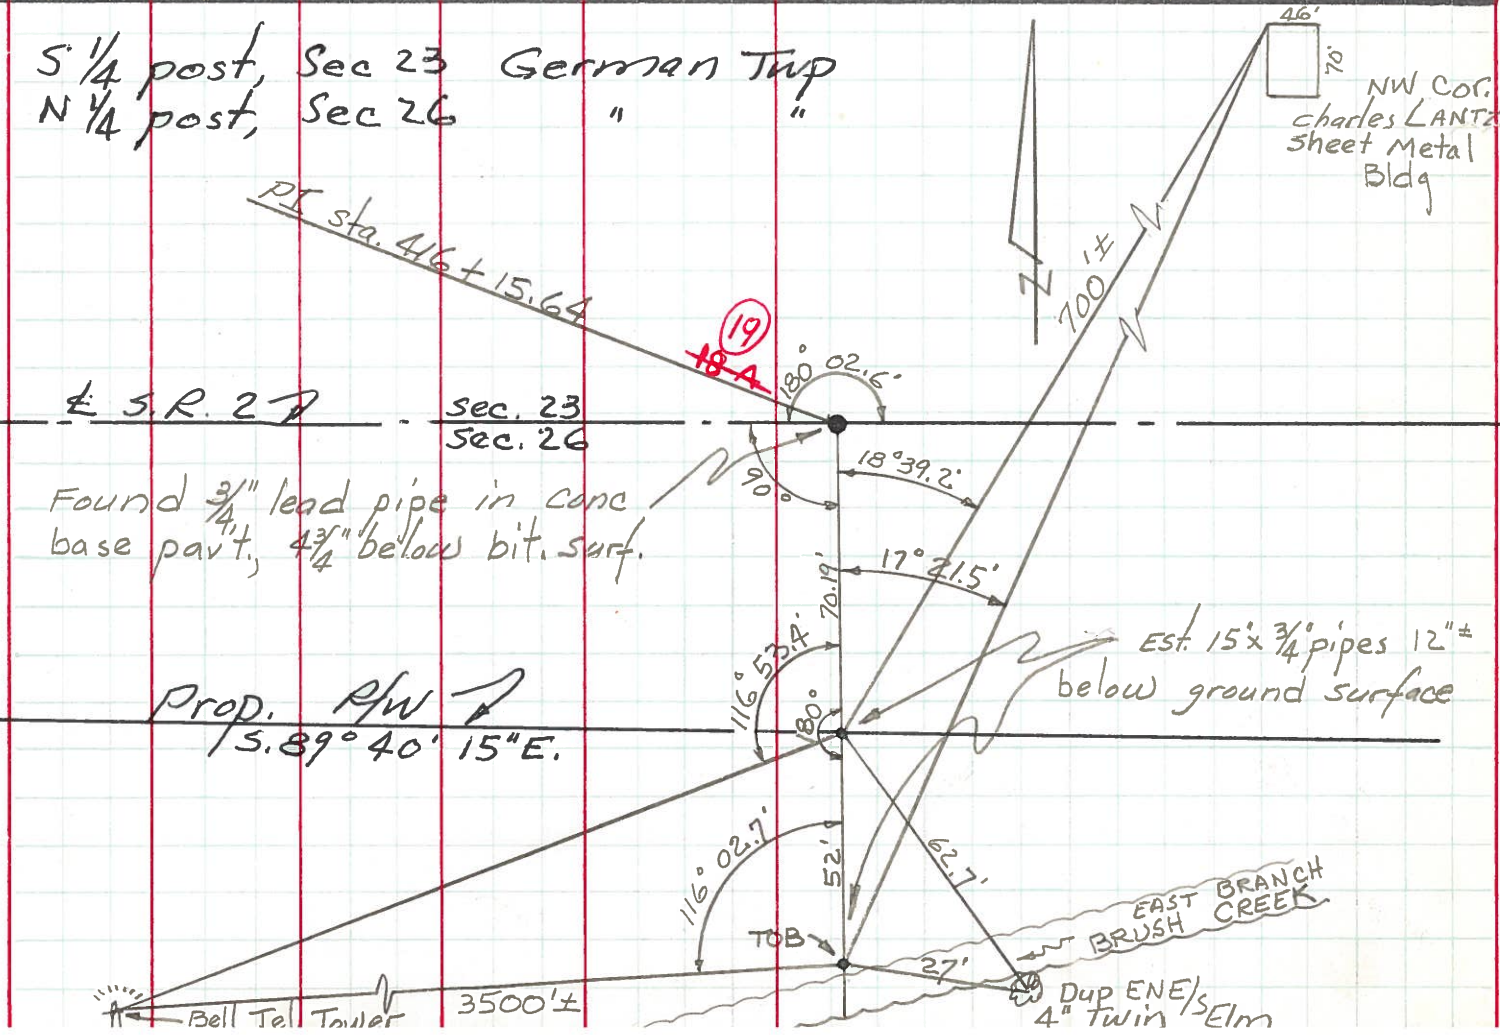 S 1/4 post, Sec 23 German Twp
N 1/4 post, Sec 26 " "
46'
70'
NW Cor.
Charles LANTZ
Sheet Metal
Bldg
PI sta. 416 + 15.64
19
18-A
180° 02.6'
N
700'±
℄ S.R. 2
Sec. 23
Sec. 26
90°
18°39.2'
Found 3/4" lead pipe in conc
base pav't., 4 3/4" below bit. surf.
17° 21.5'
70.19'
116° 53.4'
180°
Est. 15" x 3/4" pipes 12"±
below ground surface
Prop. R/W
S. 89° 40' 15" E.
116° 02.7'
52'
62.7'
EAST BRANCH
BRUSH CREEK
TOB
27'
3500'±
Bell Tel Tower
Dup ENE/S
4" Twin Elm